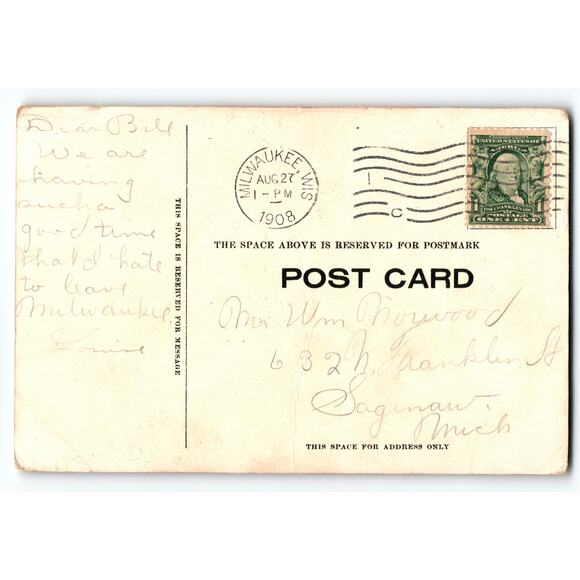 Dear Bill
We are
having
sucha
good time
that I'd hate
to leave
Milwaukee.
Louise
THIS SPACE IS RESERVED FOR MESSAGE
MILWAUKEE, WIS
AUG 27
1-PM
1908
1
C
UNITED STATES OF
AMERICA
1
POSTAGE
ONE CENT
THE SPACE ABOVE IS RESERVED FOR POSTMARK
POST CARD
Mr Wm Norwood
632 N. Franklin St
Saginaw.
Mich
THIS SPACE FOR ADDRESS ONLY